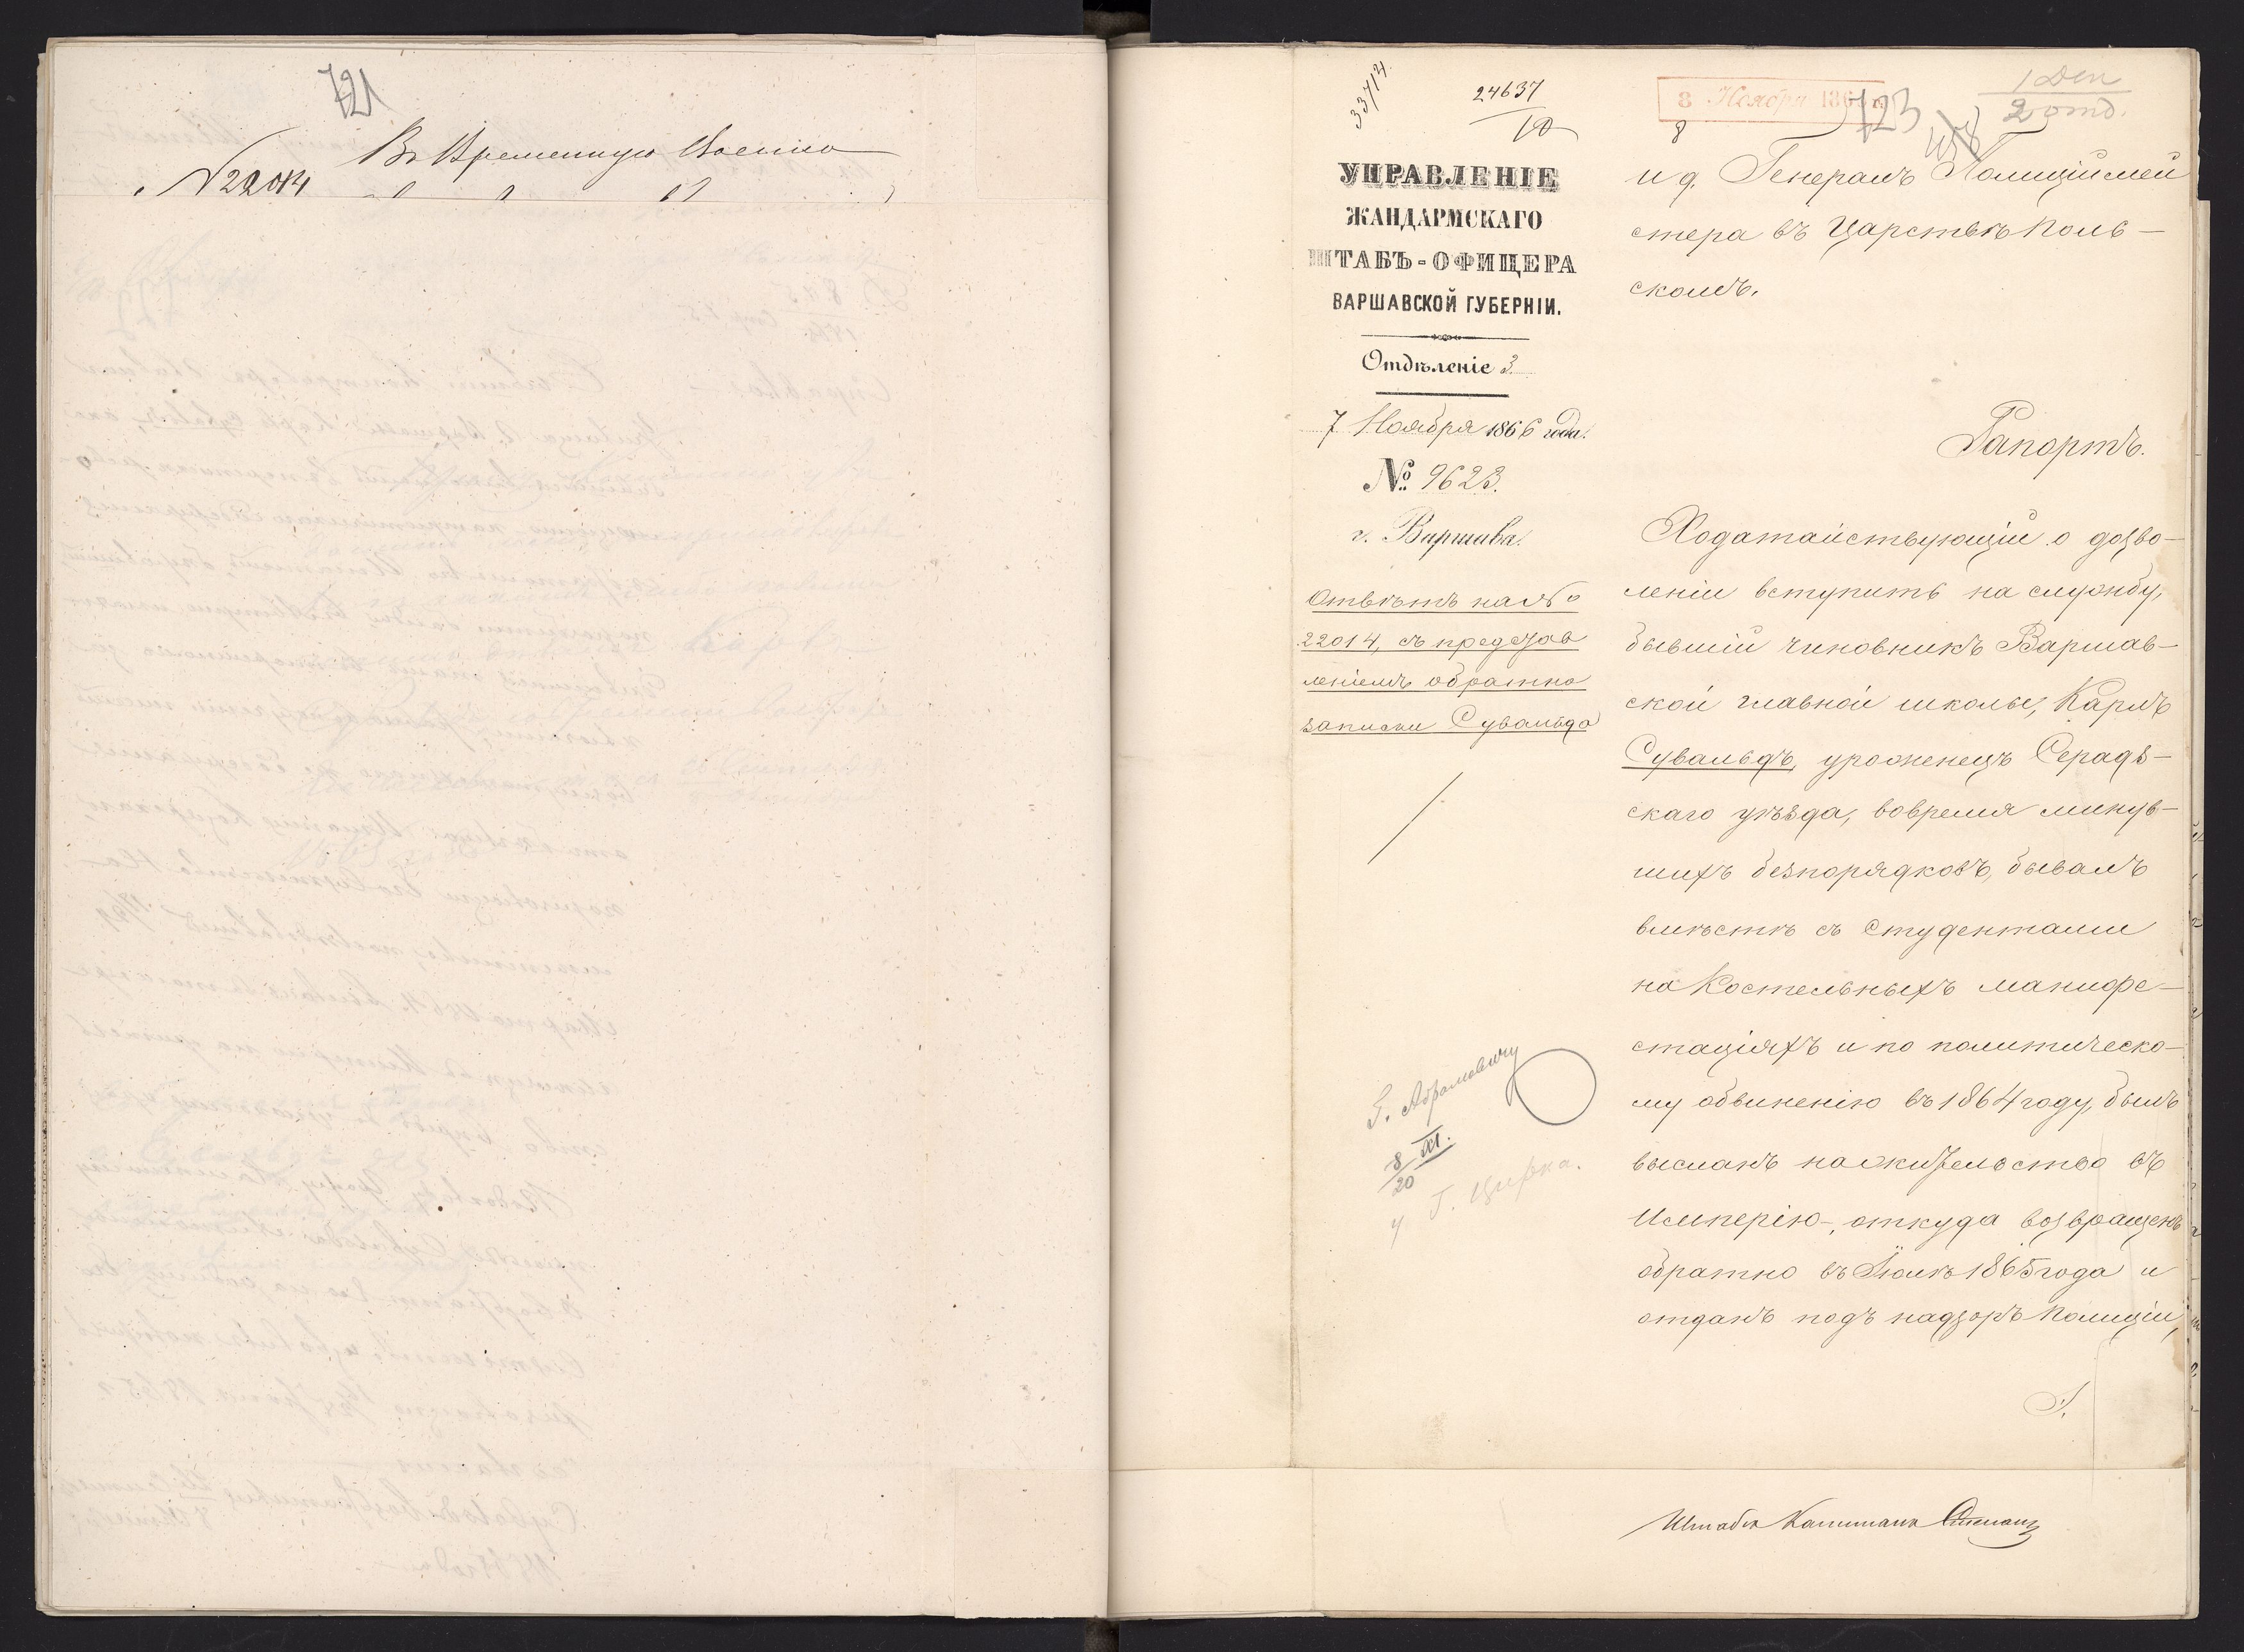 721
Въ Временную Военно
№ 22014
33714
24637
10
8 Ноября 186
8
723
1 Деп
2 отд.
УПРАВЛЕНІЕ
ЖАНДАРМСКАГО
ШТАБЪ-ОФИЦЕРА
ВАРШАВСКОЙ ГУБЕРНІИ.
Отдѣленіе 3.
7 Ноября 1866 года.
№ 9623.
г. Варшава.
Отвѣтъ на №
22014, съ представ
леніемъ обратно
записки Сувальда
Г. Абрамовичу
8/20 XI.
и д. Генералъ Полиціймей
стера въ Царствѣ Поль-
скомъ.
Рапортъ.
Ходатайствующій о дозво-
леніи вступить на службу,
бывшій чиновникъ Варшав-
ской главной школы, Карлъ
Сувальдъ, уроженецъ Серадз-
скаго уѣзда, вовремя минув-
шихъ безпорядковъ, бывалъ
вмѣстѣ съ Студентами
на Костельныхъ манифе-
стаціяхъ и по политическо-
му обвиненію въ 1864 году, былъ
высланъ на жительство въ
Имперію, откуда возвращенъ
обратно въ Іюлѣ 1865 года и
отданъ подъ надзоръ Полиціи,
Штабсъ Капитанъ